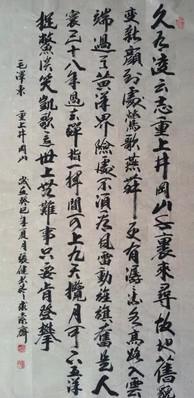 久有凌云志重上井岡山千里來尋故地舊貌
變新顔到處鶯歌燕舞更有潺潺流水高路入雲
端過了黄洋界險處不須看風雷動旌旗奮是人
寰三十八年過去彈指一揮間可上九天攬月可下五洋
捉鱉談笑凱歌還世上無難事只要肯登攀
毛澤東 重上井岡山
癸巳年夏月張健 齋